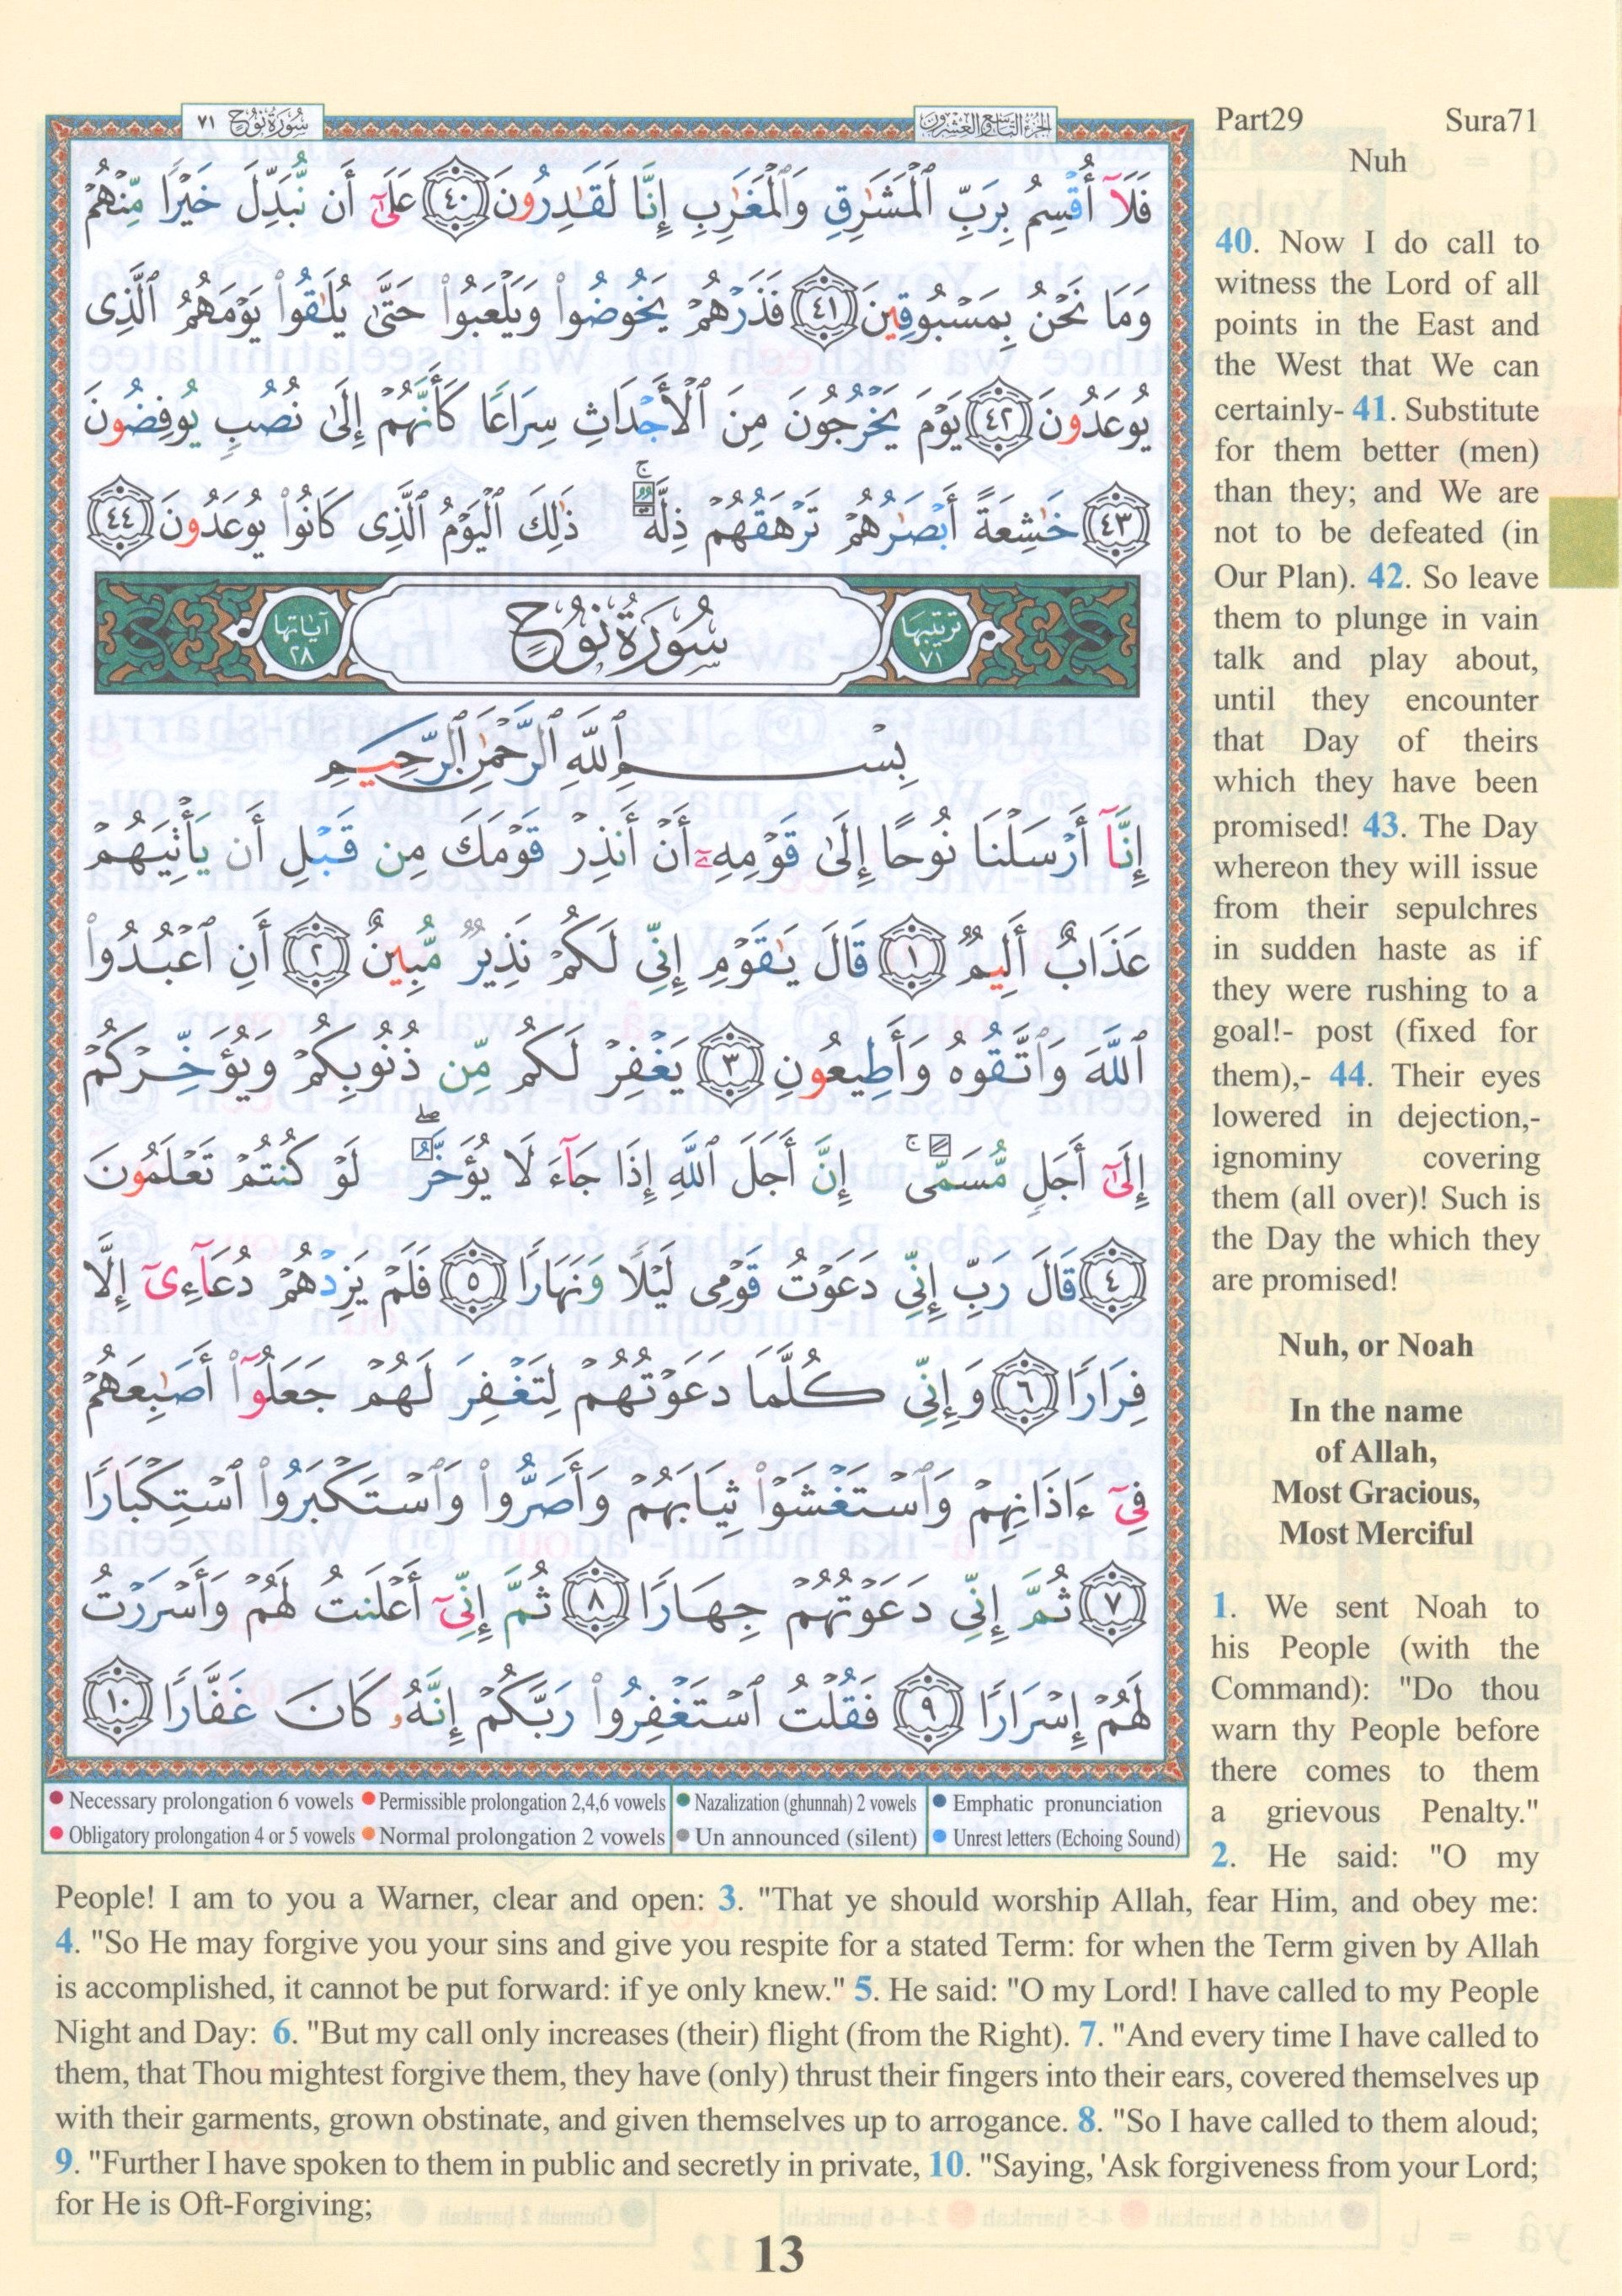 Part29 Sura71
Nuh
سُورَةُ نُوحٍ ٧١
الجزء التاسع والعشرون
فَلَآ أُقْسِمُ بِرَبِّ ٱلْمَشَٰرِقِ وَٱلْمَغَٰرِبِ إِنَّا لَقَٰدِرُونَ ٤٠ عَلَىٰٓ أَن نُّبَدِّلَ خَيْرًا مِّنْهُمْ
وَمَا نَحْنُ بِمَسْبُوقِينَ ٤١ فَذَرْهُمْ يَخُوضُوا۟ وَيَلْعَبُوا۟ حَتَّىٰ يُلَٰقُوا۟ يَوْمَهُمُ ٱلَّذِى
يُوعَدُونَ ٤٢ يَوْمَ يَخْرُجُونَ مِنَ ٱلْأَجْدَاثِ سِرَاعًا كَأَنَّهُمْ إِلَىٰ نُصُبٍ يُوفِضُونَ
٤٣ خَٰشِعَةً أَبْصَٰرُهُمْ تَرْهَقُهُمْ ذِلَّةٌ ۚ ذَٰلِكَ ٱلْيَوْمُ ٱلَّذِى كَانُوا۟ يُوعَدُونَ ٤٤
ترتيبها ٧١ سُورَةُ نُوحٍ آياتها ٢٨
بِسْمِ ٱللَّهِ ٱلرَّحْمَٰنِ ٱلرَّحِيمِ
إِنَّآ أَرْسَلْنَا نُوحًا إِلَىٰ قَوْمِهِۦٓ أَنْ أَنذِرْ قَوْمَكَ مِن قَبْلِ أَن يَأْتِيَهُمْ
عَذَابٌ أَلِيمٌ ١ قَالَ يَٰقَوْمِ إِنِّى لَكُمْ نَذِيرٌ مُّبِينٌ ٢ أَنِ ٱعْبُدُوا۟
ٱللَّهَ وَٱتَّقُوهُ وَأَطِيعُونِ ٣ يَغْفِرْ لَكُم مِّن ذُنُوبِكُمْ وَيُؤَخِّرْكُمْ
إِلَىٰٓ أَجَلٍ مُّسَمًّى ۚ إِنَّ أَجَلَ ٱللَّهِ إِذَا جَآءَ لَا يُؤَخَّرُ ۖ لَوْ كُنتُمْ تَعْلَمُونَ
٤ قَالَ رَبِّ إِنِّى دَعَوْتُ قَوْمِى لَيْلًا وَنَهَارًا ٥ فَلَمْ يَزِدْهُمْ دُعَآءِىٓ إِلَّا
فِرَارًا ٦ وَإِنِّى كُلَّمَا دَعَوْتُهُمْ لِتَغْفِرَ لَهُمْ جَعَلُوٓا۟ أَصَٰبِعَهُمْ
فِىٓ ءَاذَانِهِمْ وَٱسْتَغْشَوْا۟ ثِيَابَهُمْ وَأَصَرُّوا۟ وَٱسْتَكْبَرُوا۟ ٱسْتِكْبَارًا
٧ ثُمَّ إِنِّى دَعَوْتُهُمْ جِهَارًا ٨ ثُمَّ إِنِّىٓ أَعْلَنتُ لَهُمْ وَأَسْرَرْتُ
لَهُمْ إِسْرَارًا ٩ فَقُلْتُ ٱسْتَغْفِرُوا۟ رَبَّكُمْ إِنَّهُۥ كَانَ غَفَّارًا ١٠
Necessary prolongation 6 vowels Permissible prolongation 2,4,6 vowels Nazalization (ghunnah) 2 vowels Emphatic pronunciation
Obligatory prolongation 4 or 5 vowels Normal prolongation 2 vowels Un announced (silent) Unrest letters (Echoing Sound)
40. Now I do call to
witness the Lord of all
points in the East and
the West that We can
certainly- 41. Substitute
for them better (men)
than they; and We are
not to be defeated (in
Our Plan). 42. So leave
them to plunge in vain
talk and play about,
until they encounter
that Day of theirs
which they have been
promised! 43. The Day
whereon they will issue
from their sepulchres
in sudden haste as if
they were rushing to a
goal!- post (fixed for
them),- 44. Their eyes
lowered in dejection,-
ignominy covering
them (all over)! Such is
the Day the which they
are promised!
Nuh, or Noah
In the name
of Allah,
Most Gracious,
Most Merciful
1. We sent Noah to
his People (with the
Command): "Do thou
warn thy People before
there comes to them
a grievous Penalty."
2. He said: "O my
People! I am to you a Warner, clear and open: 3. "That ye should worship Allah, fear Him, and obey me:
4. "So He may forgive you your sins and give you respite for a stated Term: for when the Term given by Allah
is accomplished, it cannot be put forward: if ye only knew." 5. He said: "O my Lord! I have called to my People
Night and Day: 6. "But my call only increases (their) flight (from the Right). 7. "And every time I have called to
them, that Thou mightest forgive them, they have (only) thrust their fingers into their ears, covered themselves up
with their garments, grown obstinate, and given themselves up to arrogance. 8. "So I have called to them aloud;
9. "Further I have spoken to them in public and secretly in private, 10. "Saying, 'Ask forgiveness from your Lord;
for He is Oft-Forgiving;
13